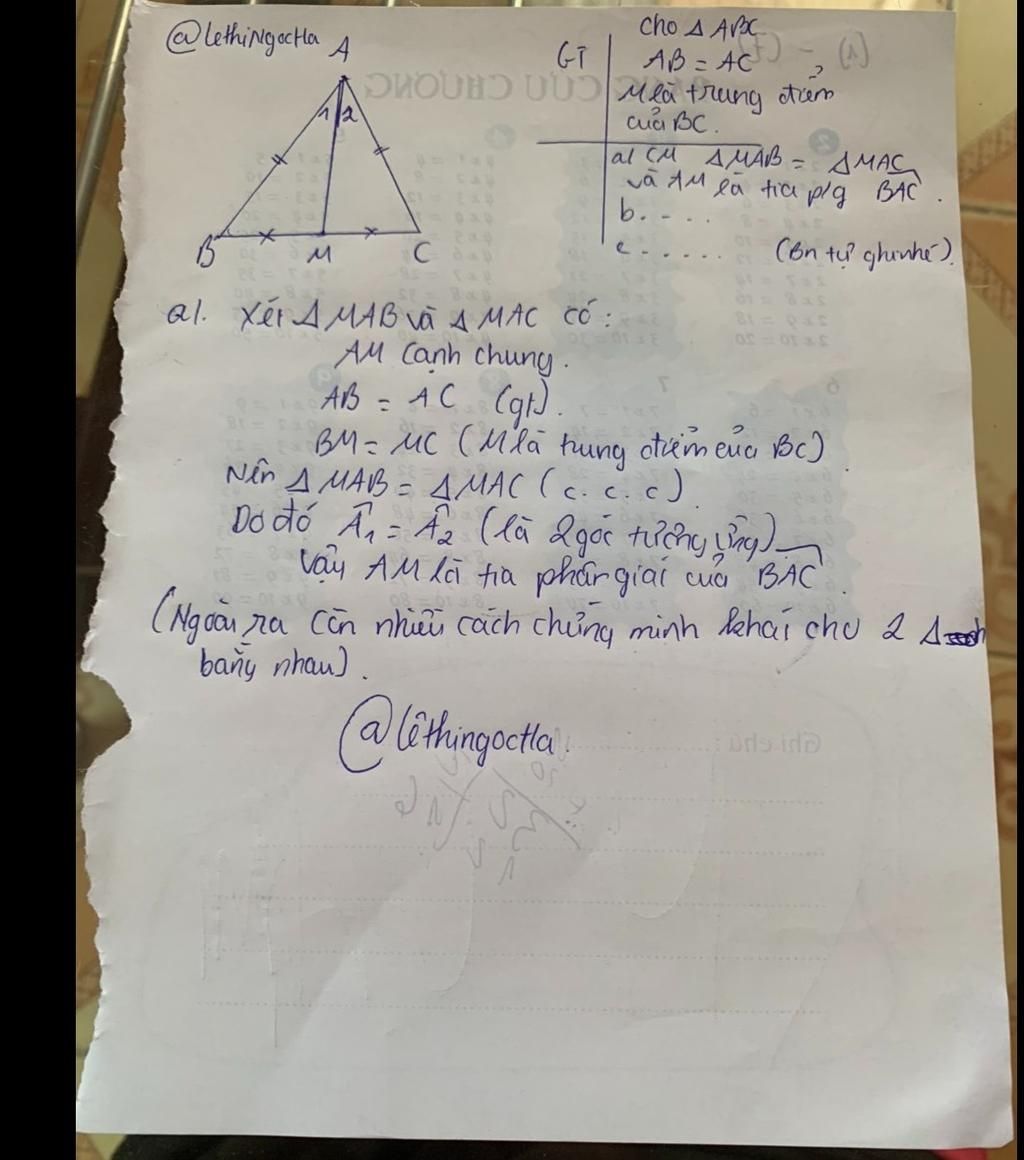 @lethiNgoctla
A
1 2
B M C
GT
Cho Δ ABC
AB = AC
M là trung điểm
của BC.
a/ CM ΔMAB = ΔMAC
và AM là tia p/g BAC.
b. . . . .
c . . . . . (Bn tự ghi nhé).
a/. Xét ΔMAB và ΔMAC có:
AM cạnh chung.
AB = AC (gt).
BM = MC (M là trung điểm của BC)
Nên ΔMAB = ΔMAC (c.c.c)
Do đó Â1 = Â2 (là 2 góc tương ứng)
Vậy AM là tia phân giác của BAC.
(Ngoài ra còn nhiều cách chứng minh khác cho 2 Δ
bằng nhau).
@lêthingoctla.
Ghi chú: